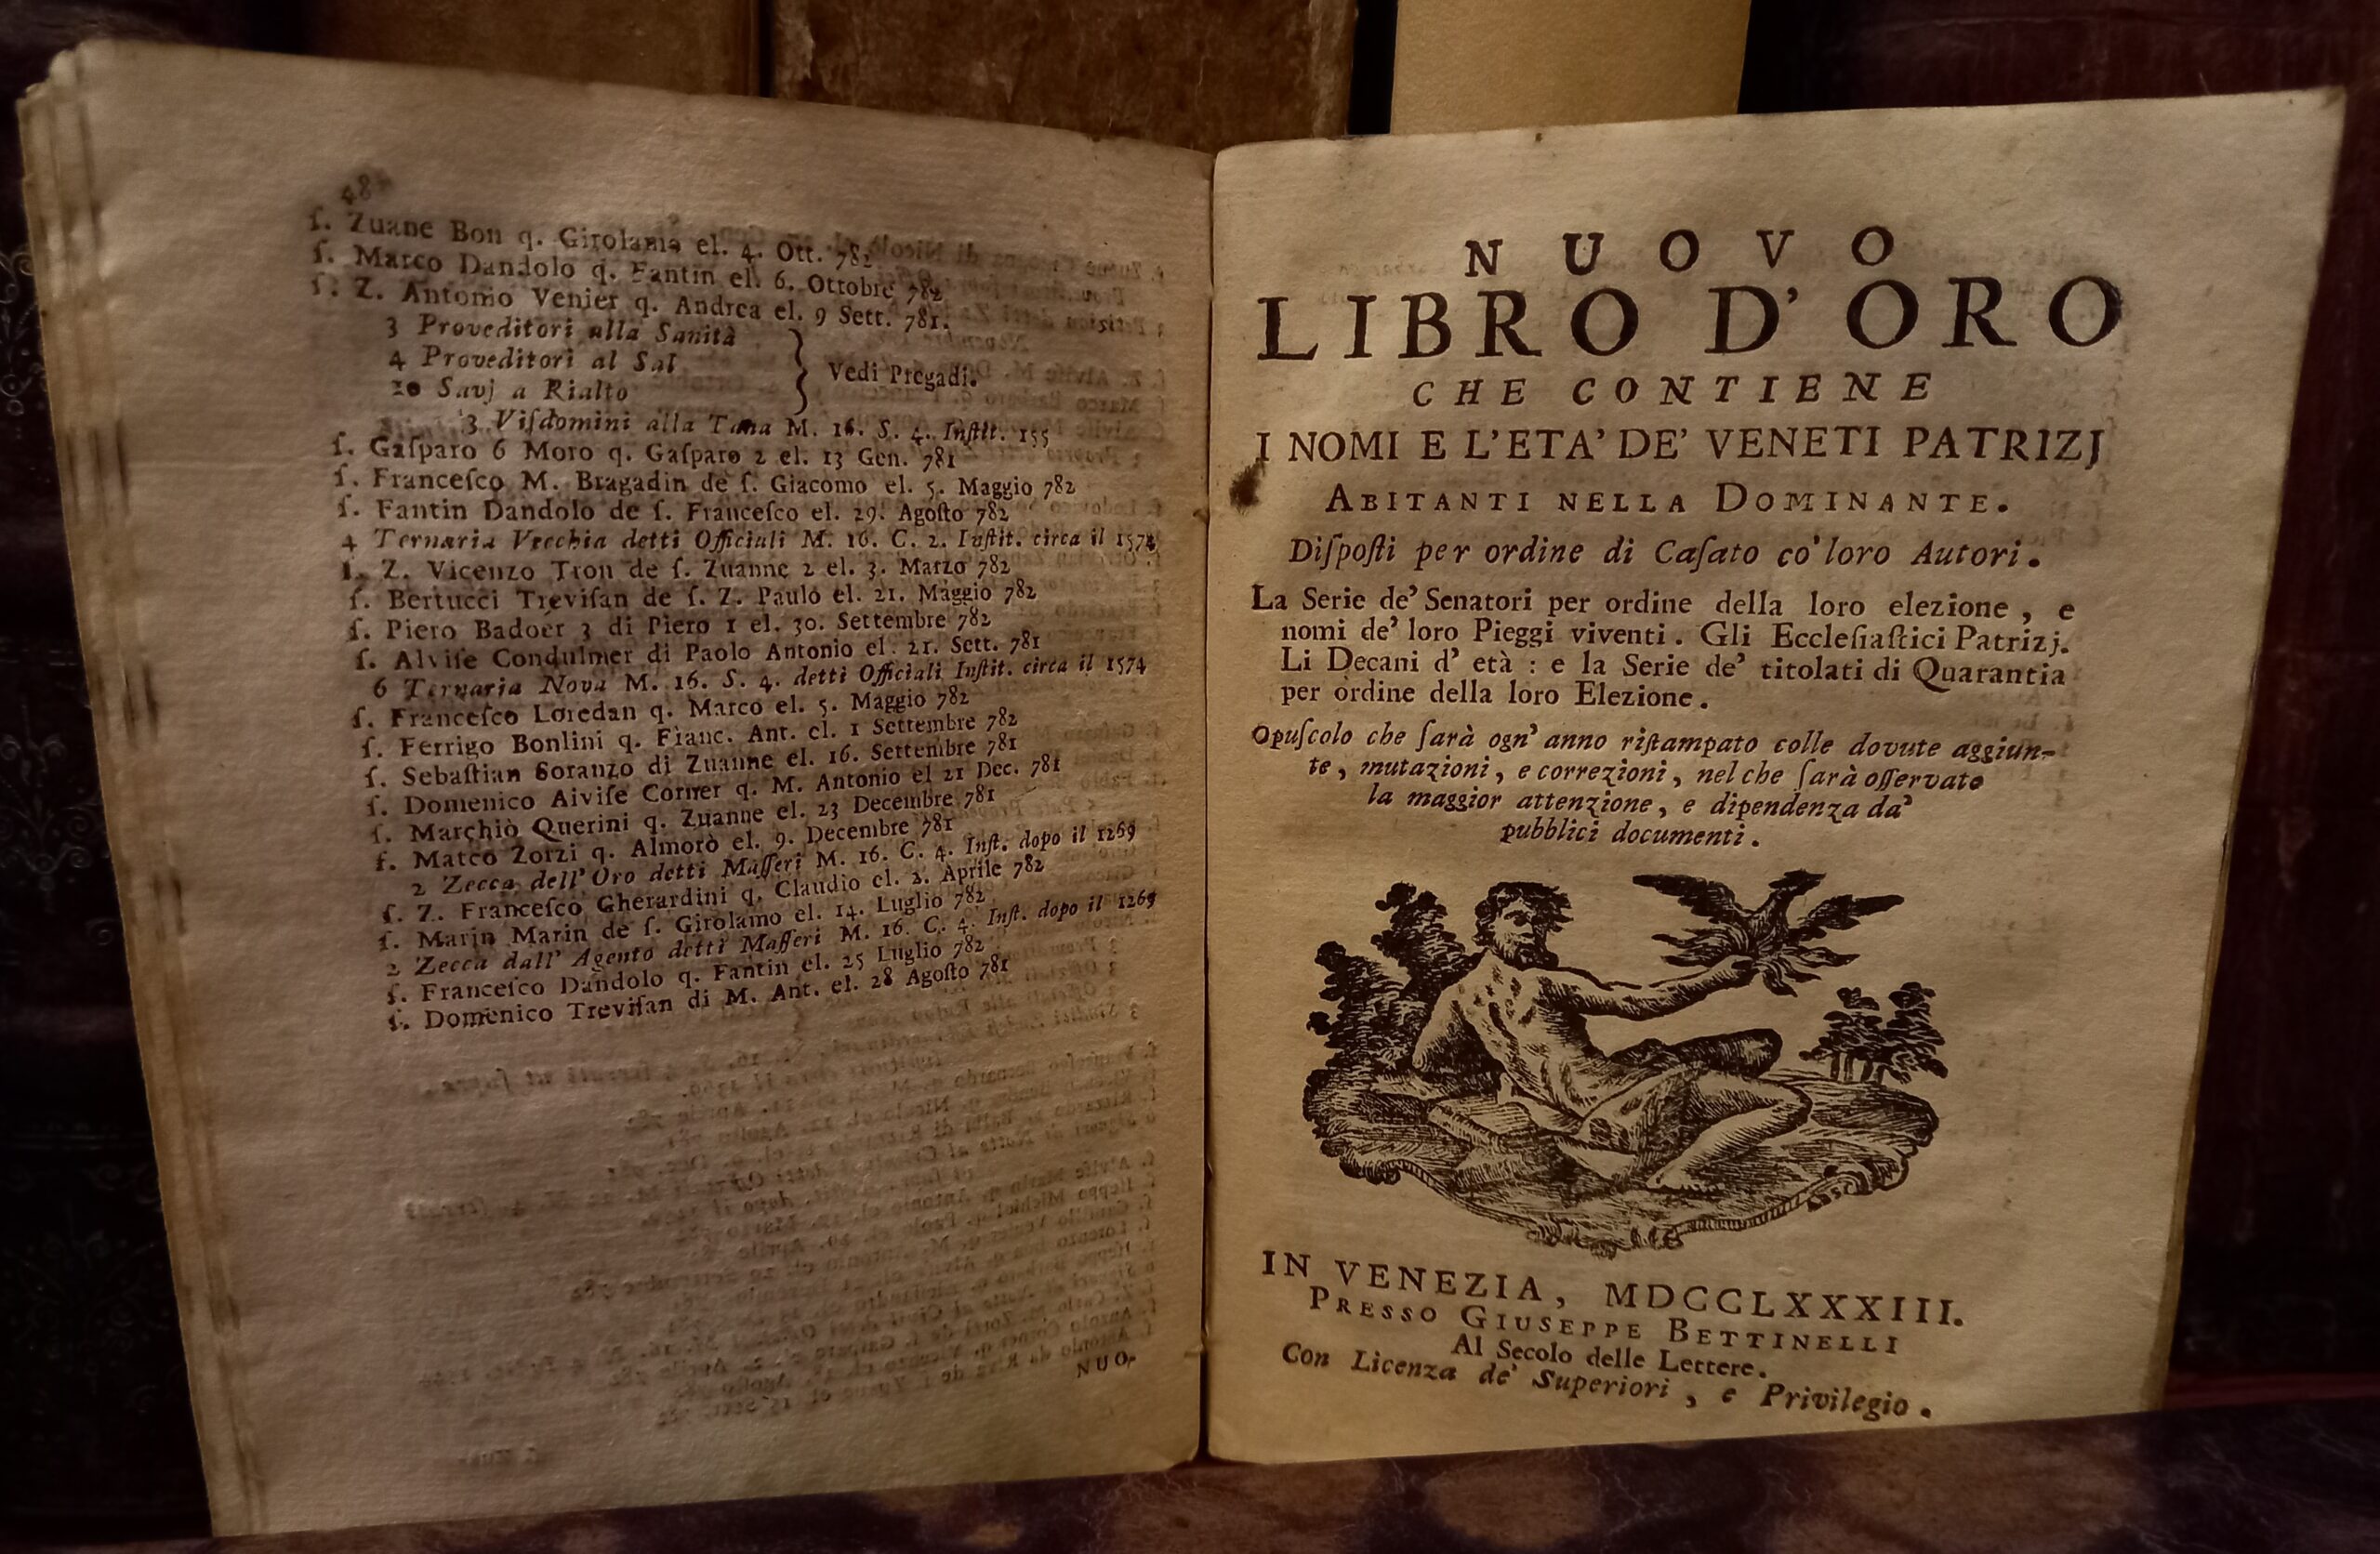 48
ſ. Zuane Bon q. Girolamo el. 4. Ott. 782
ſ. Marco Dandolo q. Fantin el. 6. Ottobre 782
ſ. Z. Antonio Venier q. Andrea el. 9 Sett. 781.
3 Proveditori alla Sanità
4 Proveditori al Sal
20 Savj a Rialto
Vedi Pregadi.
3 Viſdomini alla Tana M. 16. S. 4. Inſtit. 155
ſ. Gaſparo 6 Moro q. Gaſparo 2 el. 13 Gen. 781
ſ. Franceſco M. Bragadin de ſ. Giacomo el. 5. Maggio 782
ſ. Fantin Dandolo de ſ. Franceſco el. 29. Agoſto 782
4 Ternaria Vecchia detti Officiali M. 16. C. 2. Inſtit. circa il 1574
ſ. Z. Vicenzo Tron de ſ. Zuanne 2 el. 3. Marzo 782
ſ. Bertucci Treviſan de ſ. Z. Paulo el. 21. Maggio 782
ſ. Piero Badoer 3 di Piero 1 el. 30. Settembre 782
ſ. Alviſe Condulmer di Paolo Antonio el. 21. Sett. 781
6 Ternaria Nova M. 16. S. 4. detti Officiali Inſtit. circa il 1574
ſ. Franceſco Loredan q. Marco el. 5. Maggio 782
ſ. Ferrigo Bonlini q. Franc. Ant. el. 1 Settembre 782
ſ. Sebaſtian Soranzo di Zuanne el. 16. Settembre 781
ſ. Domenico Alviſe Corner q. M. Antonio el 21 Dec. 781
ſ. Marchiò Querini q. Zuanne el. 23 Decembre 781
ſ. Marco Zorzi q. Almorò el. 9. Decembre 781
2 Zecca dell' Oro detti Maſſeri M. 16. C. 4. Inſt. dopo il 1269
ſ. Z. Franceſco Gherardini q. Claudio el. 2. Aprile 782
ſ. Marin Marin de ſ. Girolamo el. 14. Luglio 782
2 Zecca dall' Agento detti Maſſeri M. 16 C. 4. Inſt. dopo il 1269
ſ. Franceſco Dandolo q. Fantin el. 25 Luglio 782
ſ. Domenico Treviſan di M. Ant. el. 28 Agoſto 781
NUO-
NUOVO
LIBRO D' ORO
CHE CONTIENE
I NOMI E L'ETA' DE' VENETI PATRIZJ
ABITANTI NELLA DOMINANTE.
Diſpoſti per ordine di Caſato co' loro Autori.
La Serie de' Senatori per ordine della loro elezione, e
nomi de' loro Pieggi viventi. Gli Eccleſiaſtici Patrizj.
Li Decani d' età: e la Serie de' titolati di Quarantia
per ordine della loro Elezione.
Opuſcolo che ſarà ogn' anno riſtampato colle dovute aggiun-
te, mutazioni, e correzioni, nel che ſarà oſſervato
la maggior attenzione, e dipendenza da'
pubblici documenti.
IN VENEZIA, MDCCLXXXIII.
PRESSO GIUSEPPE BETTINELLI
Al Secolo delle Lettere.
Con Licenza de' Superiori, e Privilegio.